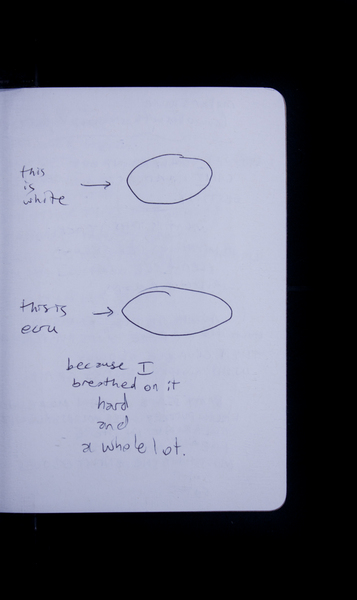 this
is
white
this is
ecru
because I
breathed on it
hard
and
a whole lot.